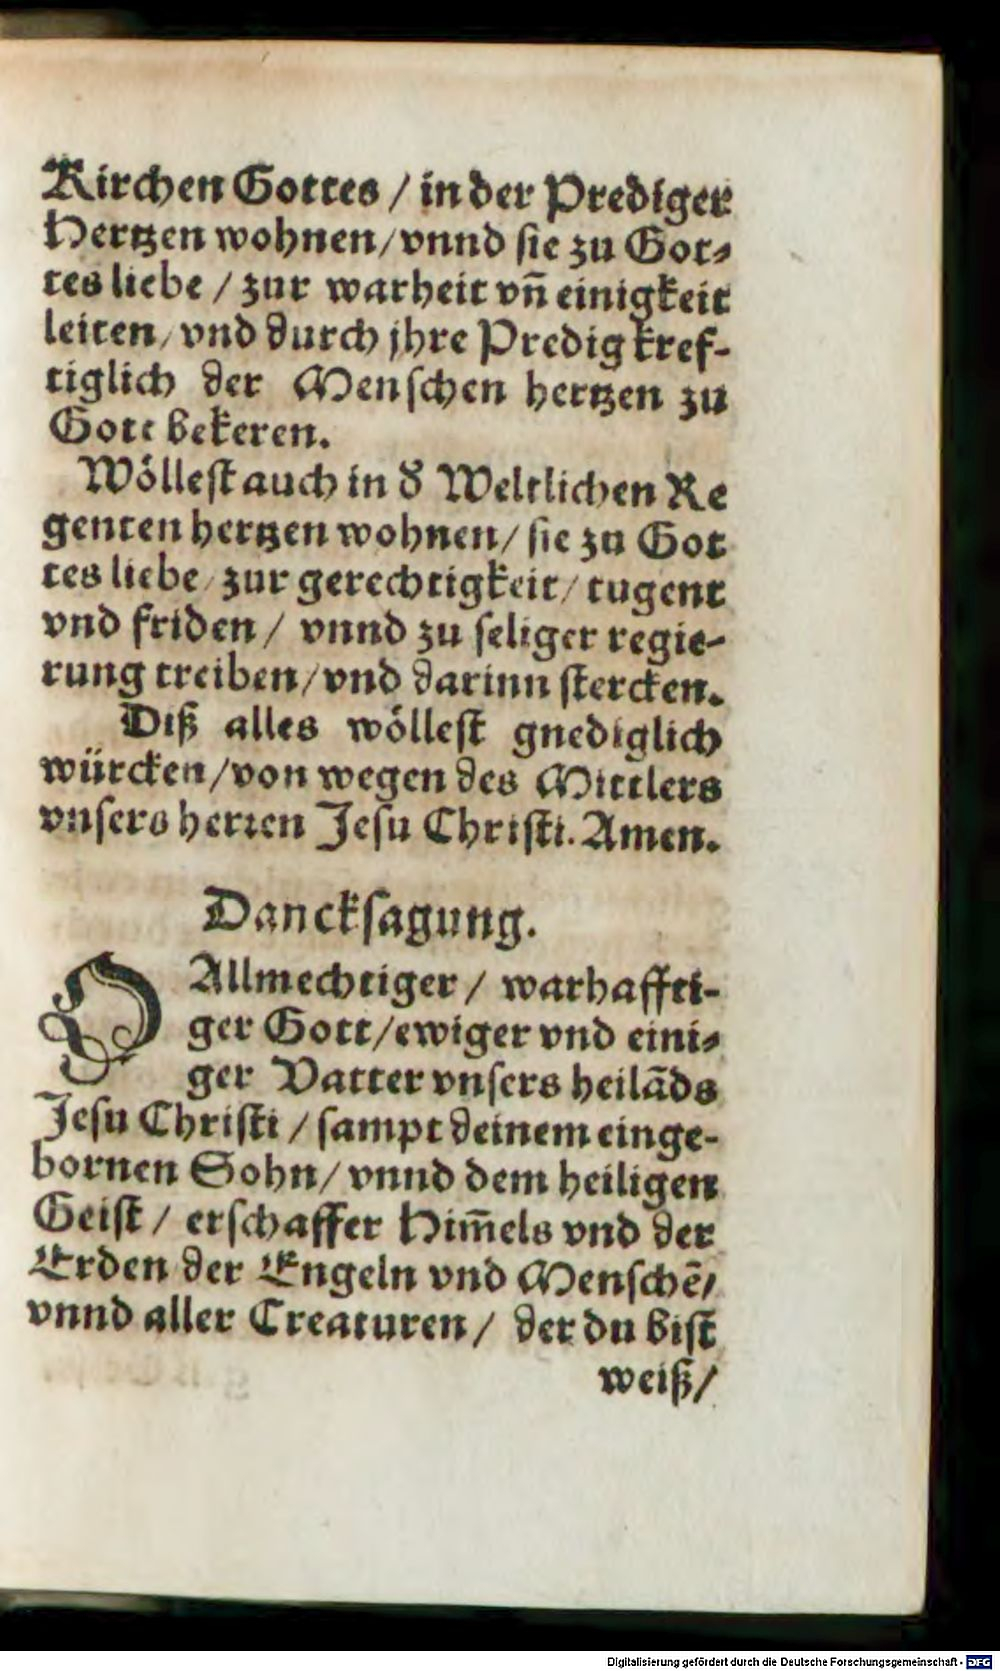 Kirchen Gottes / in der Prediger
Hertzen wohnen / vnnd sie zu Got⸗
tes liebe / zur warheit vñ einigkeit
leiten / vnd durch jhre Predig kref-
tiglich der Menschen hertzen zu
Gott bekeren.
Wöllest auch in d̕ Weltlichen Re
genten hertzen wohnen / sie zu Got
tes liebe / zur gerechtigkeit / tugent
vnd friden / vnnd zu seliger regie-
rung treiben / vnd darinn stercken.
Diß alles wöllest gnediglich
würcken / von wegen des Mittlers
vnsers herren Jesu Christi. Amen.
Dancksagung.
O Allmechtiger / warhaffti-
ger Gott / ewiger vnd eini⸗
ger Vatter vnsers heilāds
Jesu Christi / sampt deinem einge-
bornen Sohn / vnnd dem heiligen
Geist / erschaffer Him̄els vnd der
Erden der Engeln vnd Menschē /
vnnd aller Creaturen / der du bist
weiß /
Digitalisierung gefördert durch die Deutsche Forschungsgemeinschaft - DFG